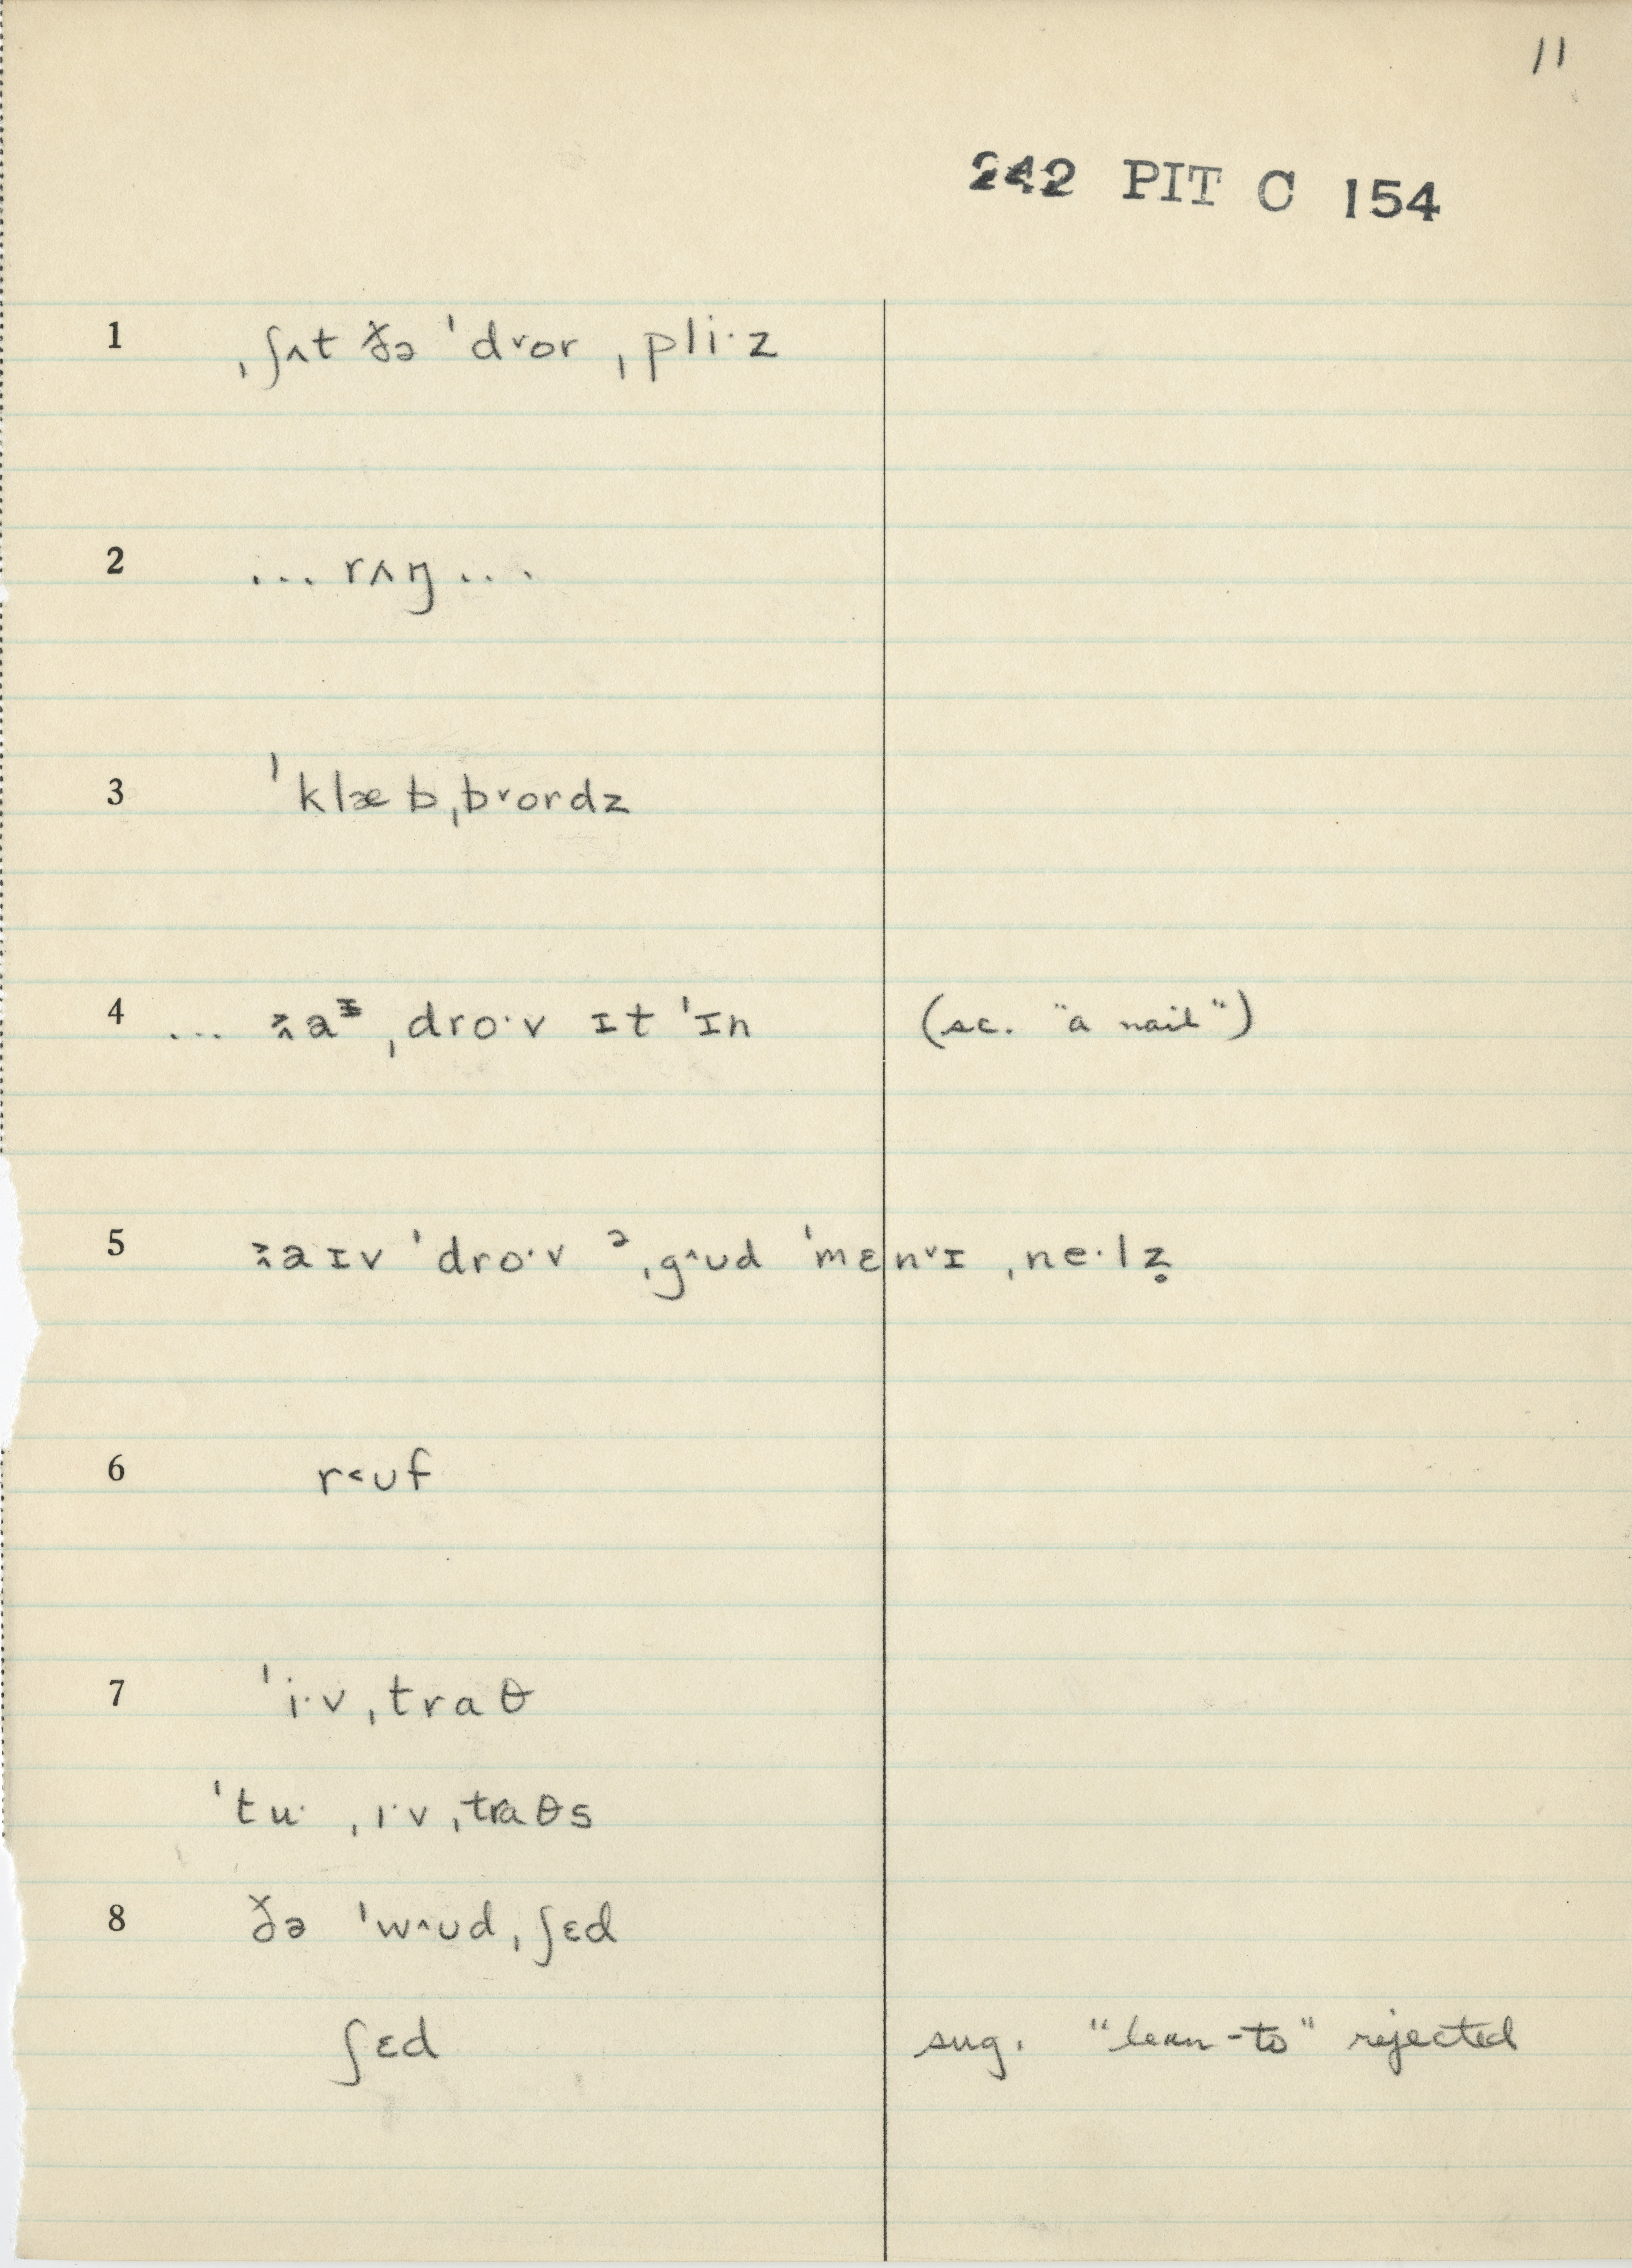 11
242 PIT C 154
1 ˌʃʌt ðə ˈd˅or ˌpli·z
2 ... rʌŋ ...
3 ˈklæbˌb˅ordz
4 ... aᶦ ˌdro·v ɪt ˈɪn (sc. "a nail")
5 aɪv ˈdro·v ᵊˌg˄ʊd ˈmɛn˅ɪ ˌne·lz̥
6 r˂ʊf
7 ˈi·vˌtraθ
ˈtu· ˌi·vˌtraθs
8 ðə ˈw˄ʊdˌʃɛd
ʃɛd sug. "lean-to" rejected